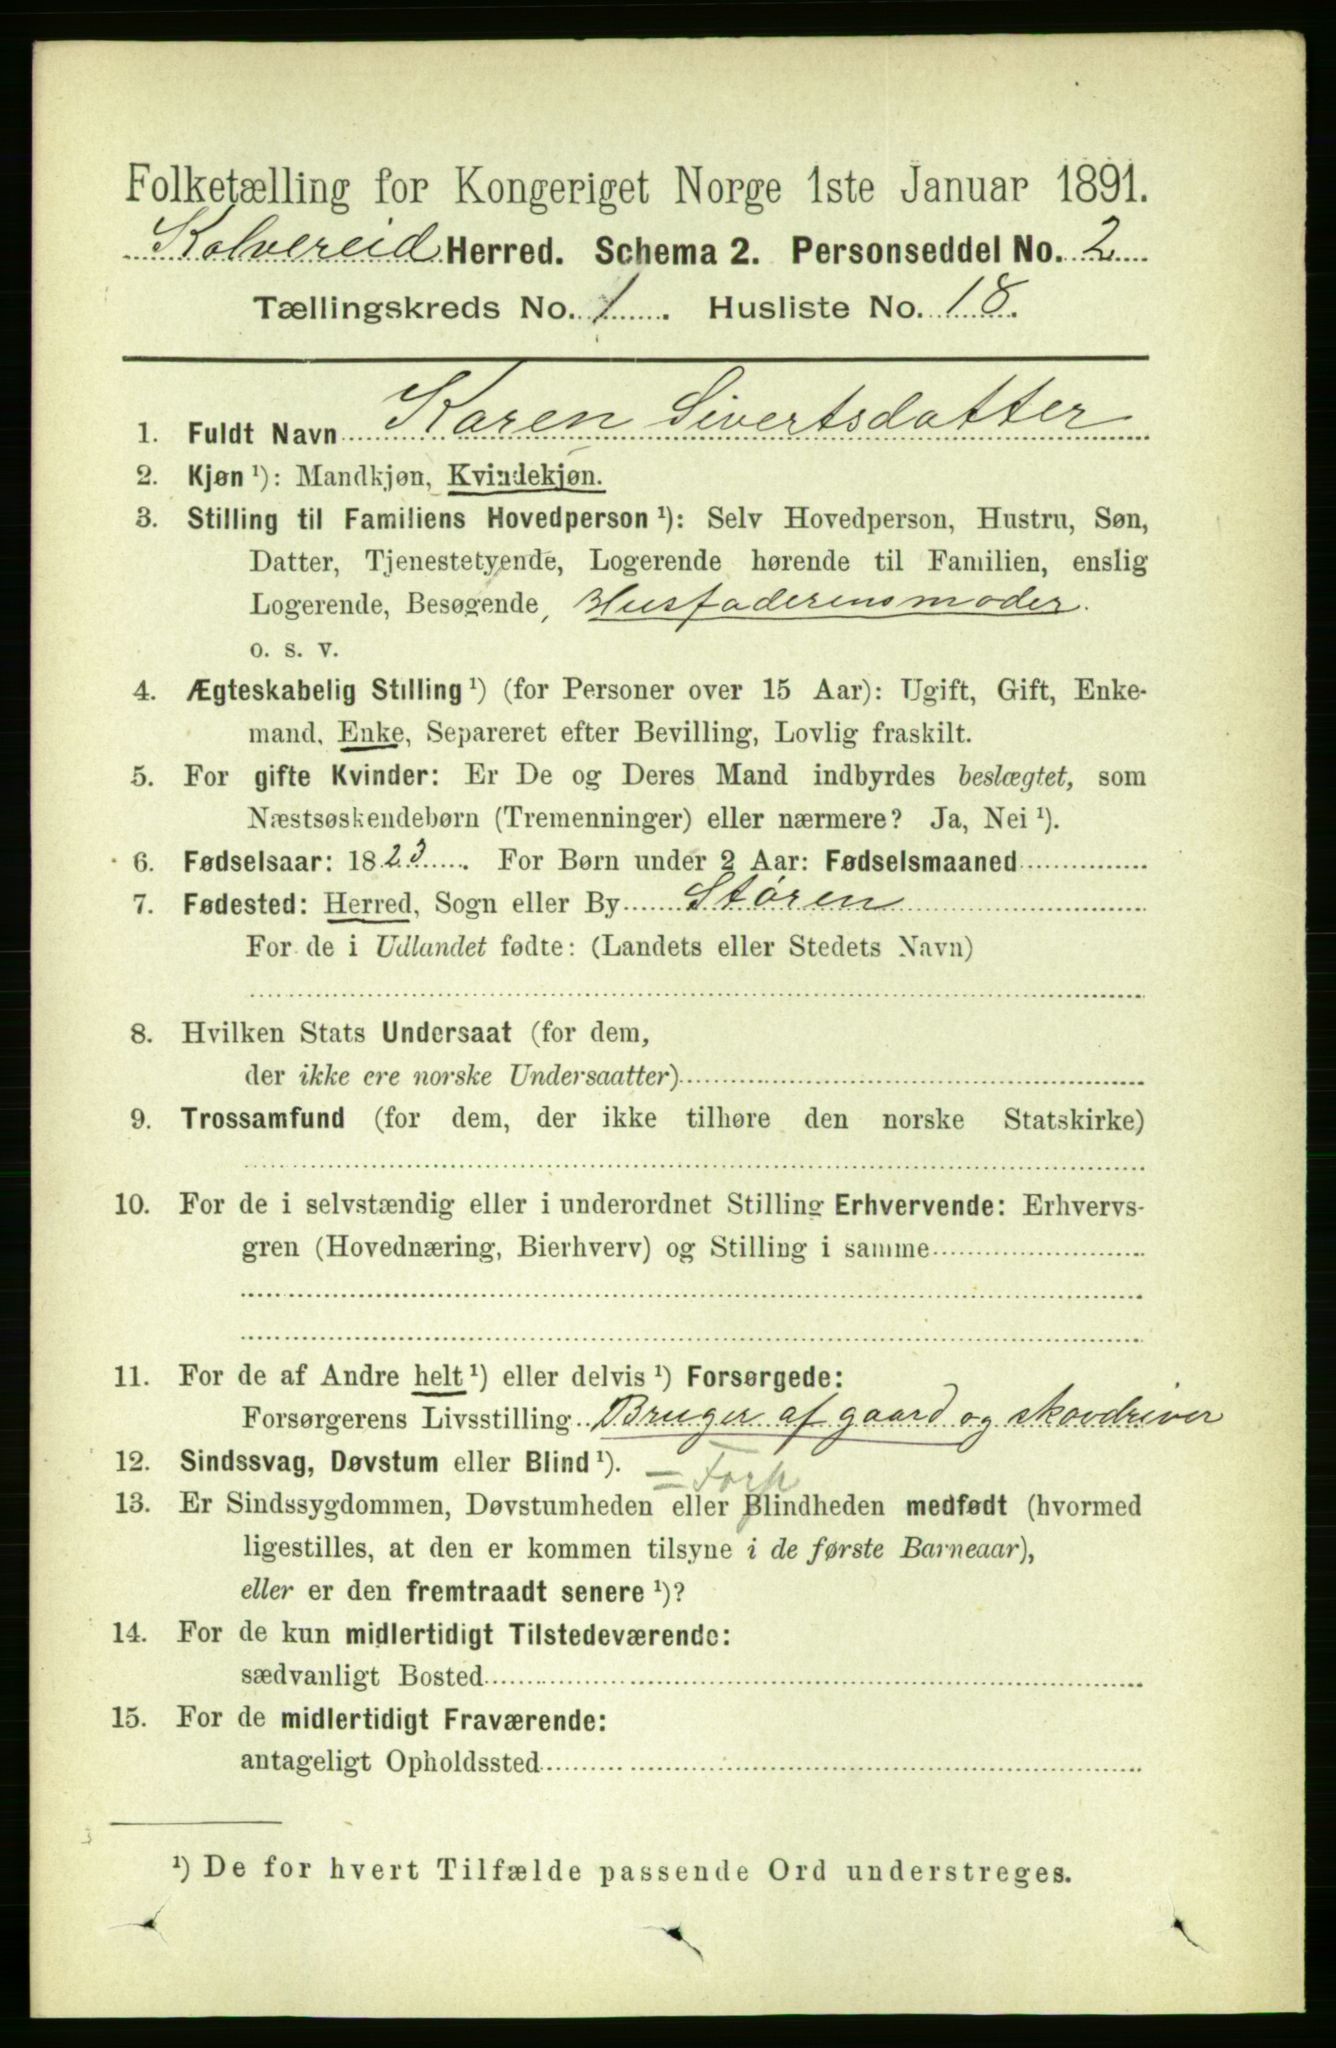 Folketælling for Kongeriget Norge 1ste Januar 1891.
Kolvereid Herred. Schema 2. Personseddel No. 2
Tællingskreds No. 1. Husliste No. 18.
1. Fuldt Navn Karen Sivertsdatter
2. Kjøn ¹): Mandkjøn, Kvindekjøn.
3. Stilling til Familiens Hovedperson ¹): Selv Hovedperson, Hustru, Søn,
Datter, Tjenestetyende, Logerende hørende til Familien, enslig
Logerende, Besøgende, Husfaderens moder.
o. s. v.
4. Ægteskabelig Stilling ¹) (for Personer over 15 Aar): Ugift, Gift, Enke-
mand, Enke, Separeret efter Bevilling, Lovlig fraskilt.
5. For gifte Kvinder: Er De og Deres Mand indbyrdes beslægtet, som
Næstsøskendebørn (Tremenninger) eller nærmere? Ja, Nei ¹).
6. Fødselsaar: 1823. For Børn under 2 Aar: Fødselsmaaned
7. Fødested: Herred, Sogn eller By Støren
For de i Udlandet fødte: (Landets eller Stedets Navn)
8. Hvilken Stats Undersaat (for dem,
der ikke ere norske Undersaatter)
9. Trossamfund (for dem, der ikke tilhøre den norske Statskirke)
10. For de i selvstændig eller i underordnet Stilling Erhvervende: Erhvervs-
gren (Hovednæring, Bierhverv) og Stilling i samme
11. For de af Andre helt ¹) eller delvis ¹) Forsørgede:
Forsørgerens Livsstilling Bruger af gaard og skovdriver
12. Sindssvag, Døvstum eller Blind ¹).
13. Er Sindssygdommen, Døvstumheden eller Blindheden medfødt (hvormed
ligestilles, at den er kommen tilsyne i de første Barneaar),
eller er den fremtraadt senere ¹)?
14. For de kun midlertidigt Tilstedeværende:
sædvanligt Bosted
15. For de midlertidigt Fraværende:
antageligt Opholdssted
¹) De for hvert Tilfælde passende Ord understreges.